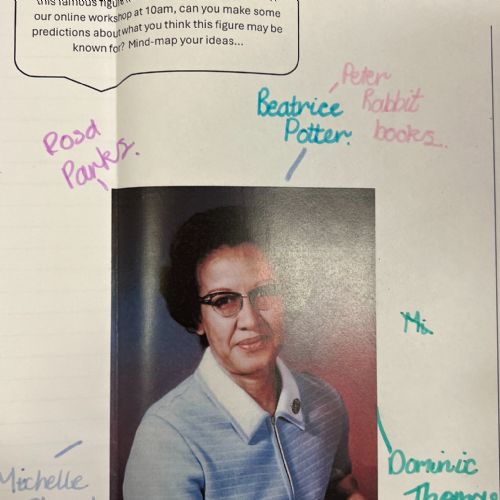 this famous
our online workshop at 10am, can you make some
predictions about what you think this figure may be
known for? Mind-map your ideas...
Peter
Rabbit
books.
Beatrice
Potter.
Rosa
Parks.
Mi
Dominic
Michelle